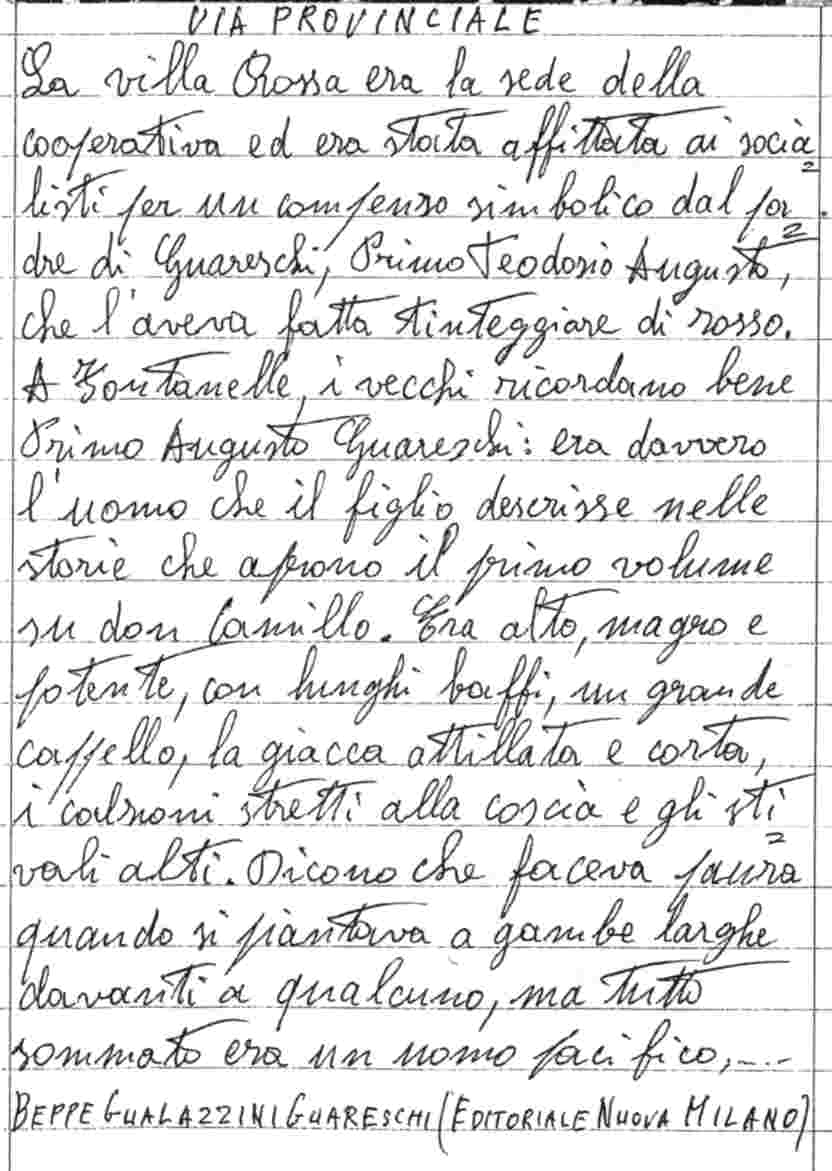 VIA PROVINCIALE
La villa Rossa era la sede della
cooperativa ed era stata affittata ai socia
listi per un compenso simbolico dal pa
dre di Guareschi, Primo Teodosio Augusto,
che l'aveva fatta tinteggiare di rosso.
A Fontanelle, i vecchi ricordano bene
Primo Augusto Guareschi: era davvero
l'uomo che il figlio descrisse nelle
storie che aprono il primo volume
su don Camillo. Era alto, magro e
potente, con lunghi baffi, un grande
cappello, la giacca attillata e corta,
i calzoni stretti alla coscia e gli sti
vali alti. Dicono che faceva paura
quando si piantava a gambe larghe
davanti a qualcuno, ma tutto
sommato era un uomo pacifico,....
BEPPE GUALAZZINI GUARESCHI (EDITORIALE NUOVA MILANO)